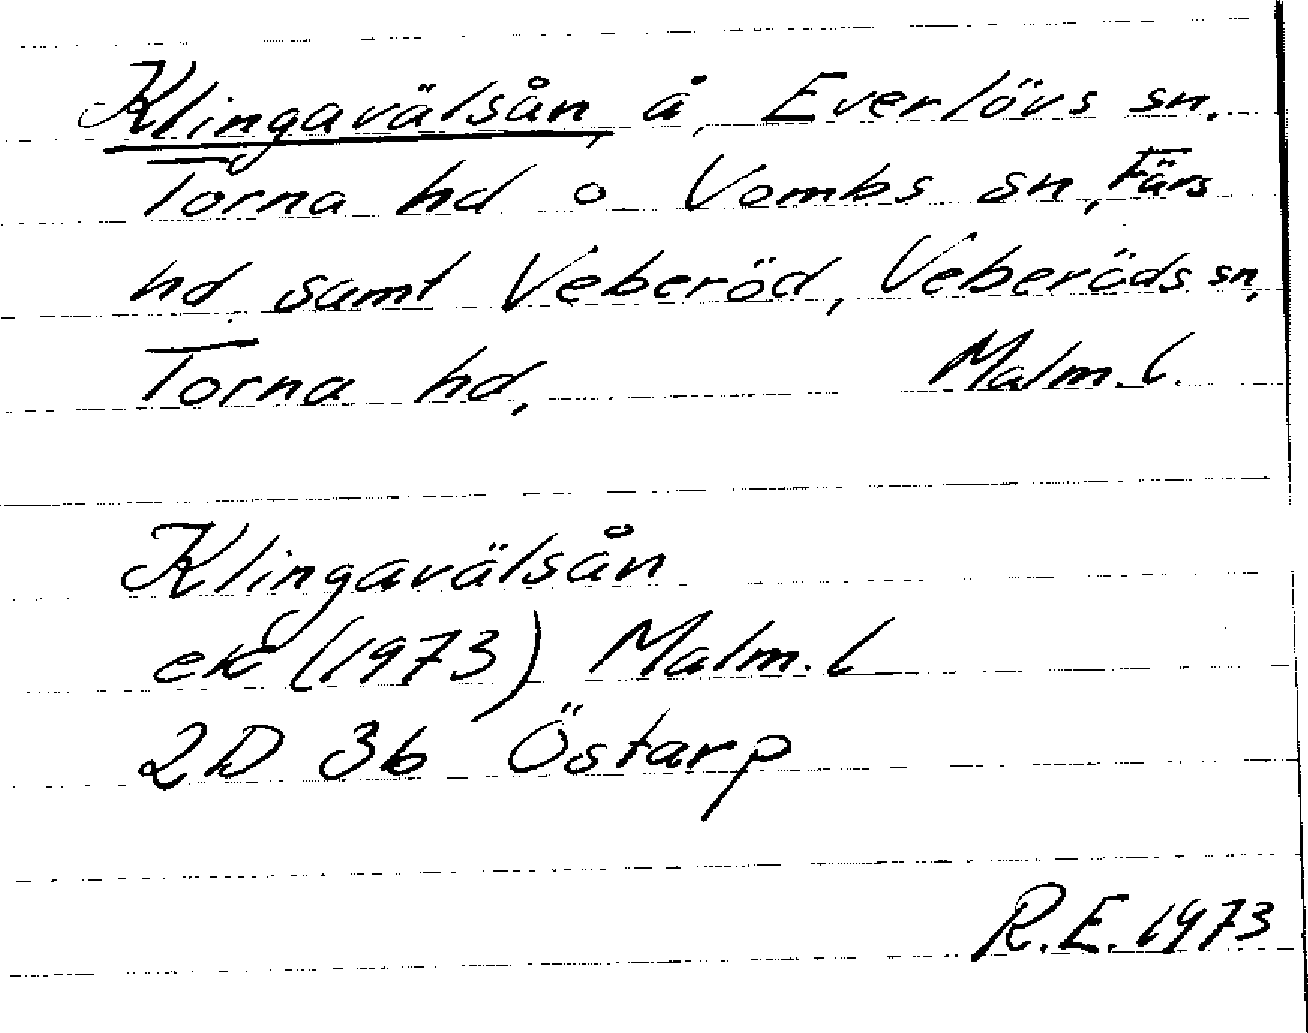 Klingavälsån, å, Everlövs sn.
Torna hd o Vombs sn, Färs
hd samt Veberöd, Veberöds sn,
Torna hd, Malm. l.
Klingavälsån
ek (1973) Malm. l
2D 3b Östarp
R.E. 1973